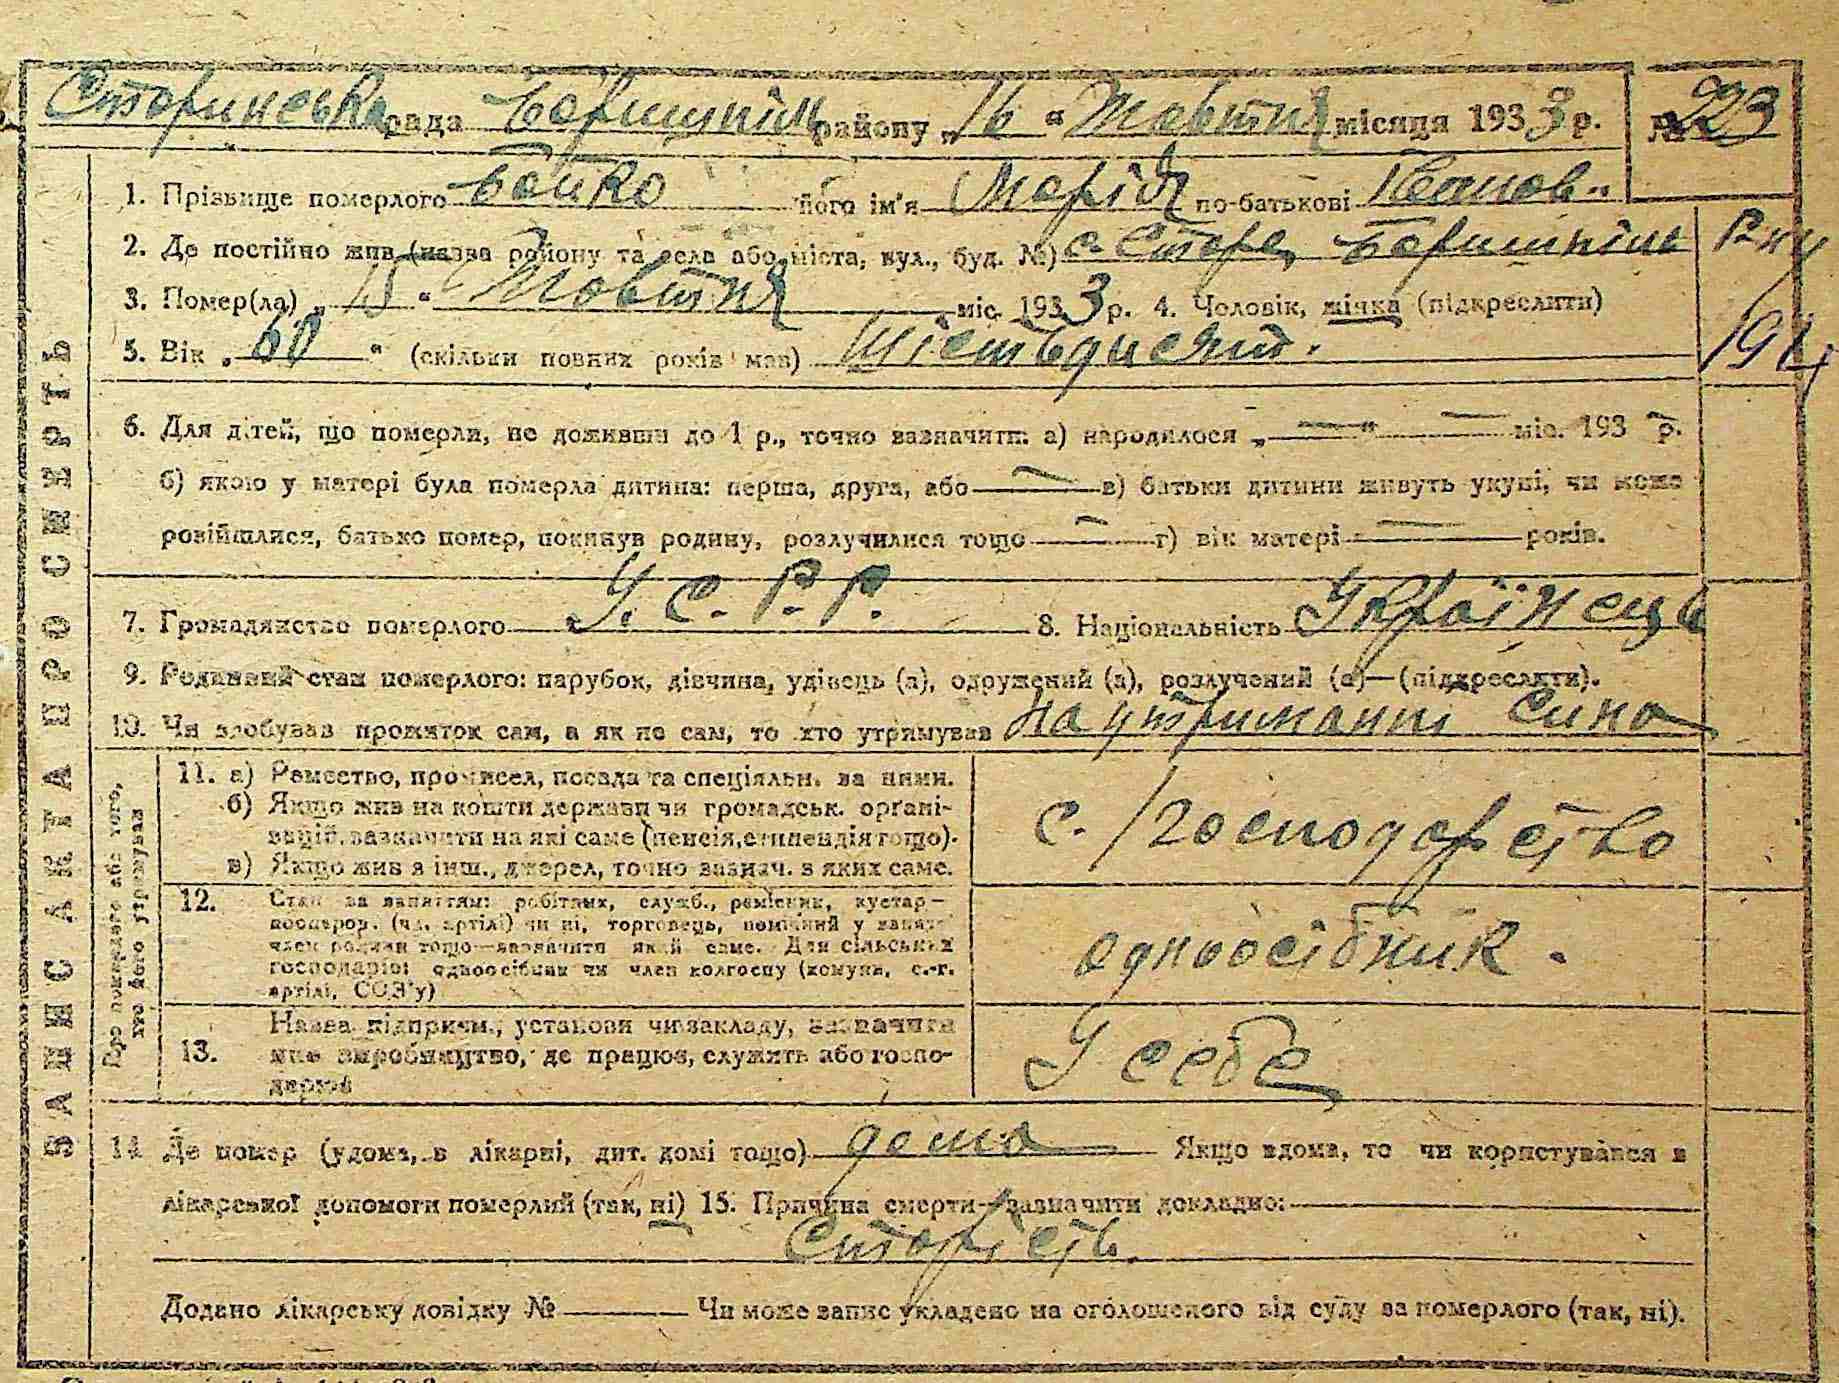 Старинська рада Боришпіль району „16“ Жовтня місяця 1933 р. № 223
1. Прізвище померлого Бойко його ім'я Марія по-батькові Іванов..
2. Де постійно жив (назва району та села або міста, вул., буд. №) с. Старе, Боришпіль р-ну
3. Помер(ла) „15“ Жовтня міс. 1933 р. 4. Чоловік, жінка (підкреслити)
5. Вік „60“ (скільки повних років мав) Шістьдисят.
6. Для дітей, що померли, не доживши до 1 р., точно зазначити: а) народилося „—“ — міс. 193 — р.
б) якою у матері була померла дитина: перша, друга, або — в) батьки дитини живуть укупі, чи може
розійшлися, батько помер, покинув родину, розлучилися тощо — г) вік матері — років.
7. Громадянство померлого У. С. Р. Р. 8. Національність Українець
9. Родинний стан померлого: парубок, дівчина, удівець (а), одружений (а), розлучений (а)—(підкреслити).
10. Чи здобував прожиток сам, а як не сам, то хто утримував на утриманні сина
ЗАПИС АКТА ПРО СМЕРТЬ
Про померлого або того,
хто його утримував
11. а) Ремество, промисел, посада та спеціяльн. за ними.
б) Якщо жив на кошти держави чи громадськ. орґані-
зацій, зазначити на які саме (пенсія, стипендія тощо).
в) Якщо жив з інш., джерел, точно зазнач. з яких саме.
с. /господарство
12. Стан за заняттям: робітник, служб., ремісник, кустар—
кооперов. (чл. артілі) чи ні, торговець, помічний у занят.
член родини тощо—зазначити який саме. Для сільських
господарів: одноосібник чи член колгоспу (комуни, с.-г.
артілі, СОЗ'у)
одноосібник.
Назва підприєм., установи чи закладу, зазначити
13. яке виробництво, де працює, служить або госпо-
дарює
У себе
14 Де помер (удома, в лікарні, дит. домі тощо) дома Якщо вдома, то чи користувався з
лікарської допомоги померлий (так, ні) 15. Причина смерти—зазначити докладно:
Старість.
Додано лікарську довідку № — Чи може запис укладено на оголошеного від суду за померлого (так, ні).